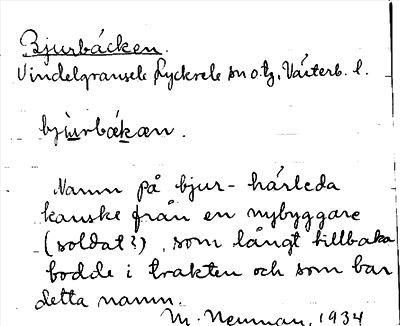 Bjurbäcken.
Vindelgransele Lycksele sn o. tg, Västerb. l.
bjurbäkan.
Namn på bjur- härleda
kanske från en nybyggare
(soldat?), som långt tillbaka
bodde i trakten och som bar
detta namn.
M. Neuman, 1934